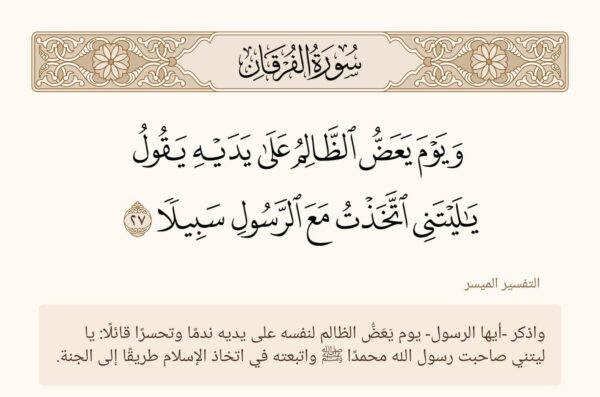 سُورَةُ الْفُرْقَانِ
وَيَوْمَ يَعَضُّ ٱلظَّالِمُ عَلَىٰ يَدَيْهِ يَقُولُ
يَٰلَيْتَنِي ٱتَّخَذْتُ مَعَ ٱلرَّسُولِ سَبِيلًا ٢٧
التفسير الميسر
واذكر -أيها الرسول- يوم يَعَضُّ الظالم لنفسه على يديه ندمًا وتحسرًا قائلًا: يا
ليتني صاحبت رسول الله محمدًا ﷺ واتبعته في اتخاذ الإسلام طريقًا إلى الجنة.